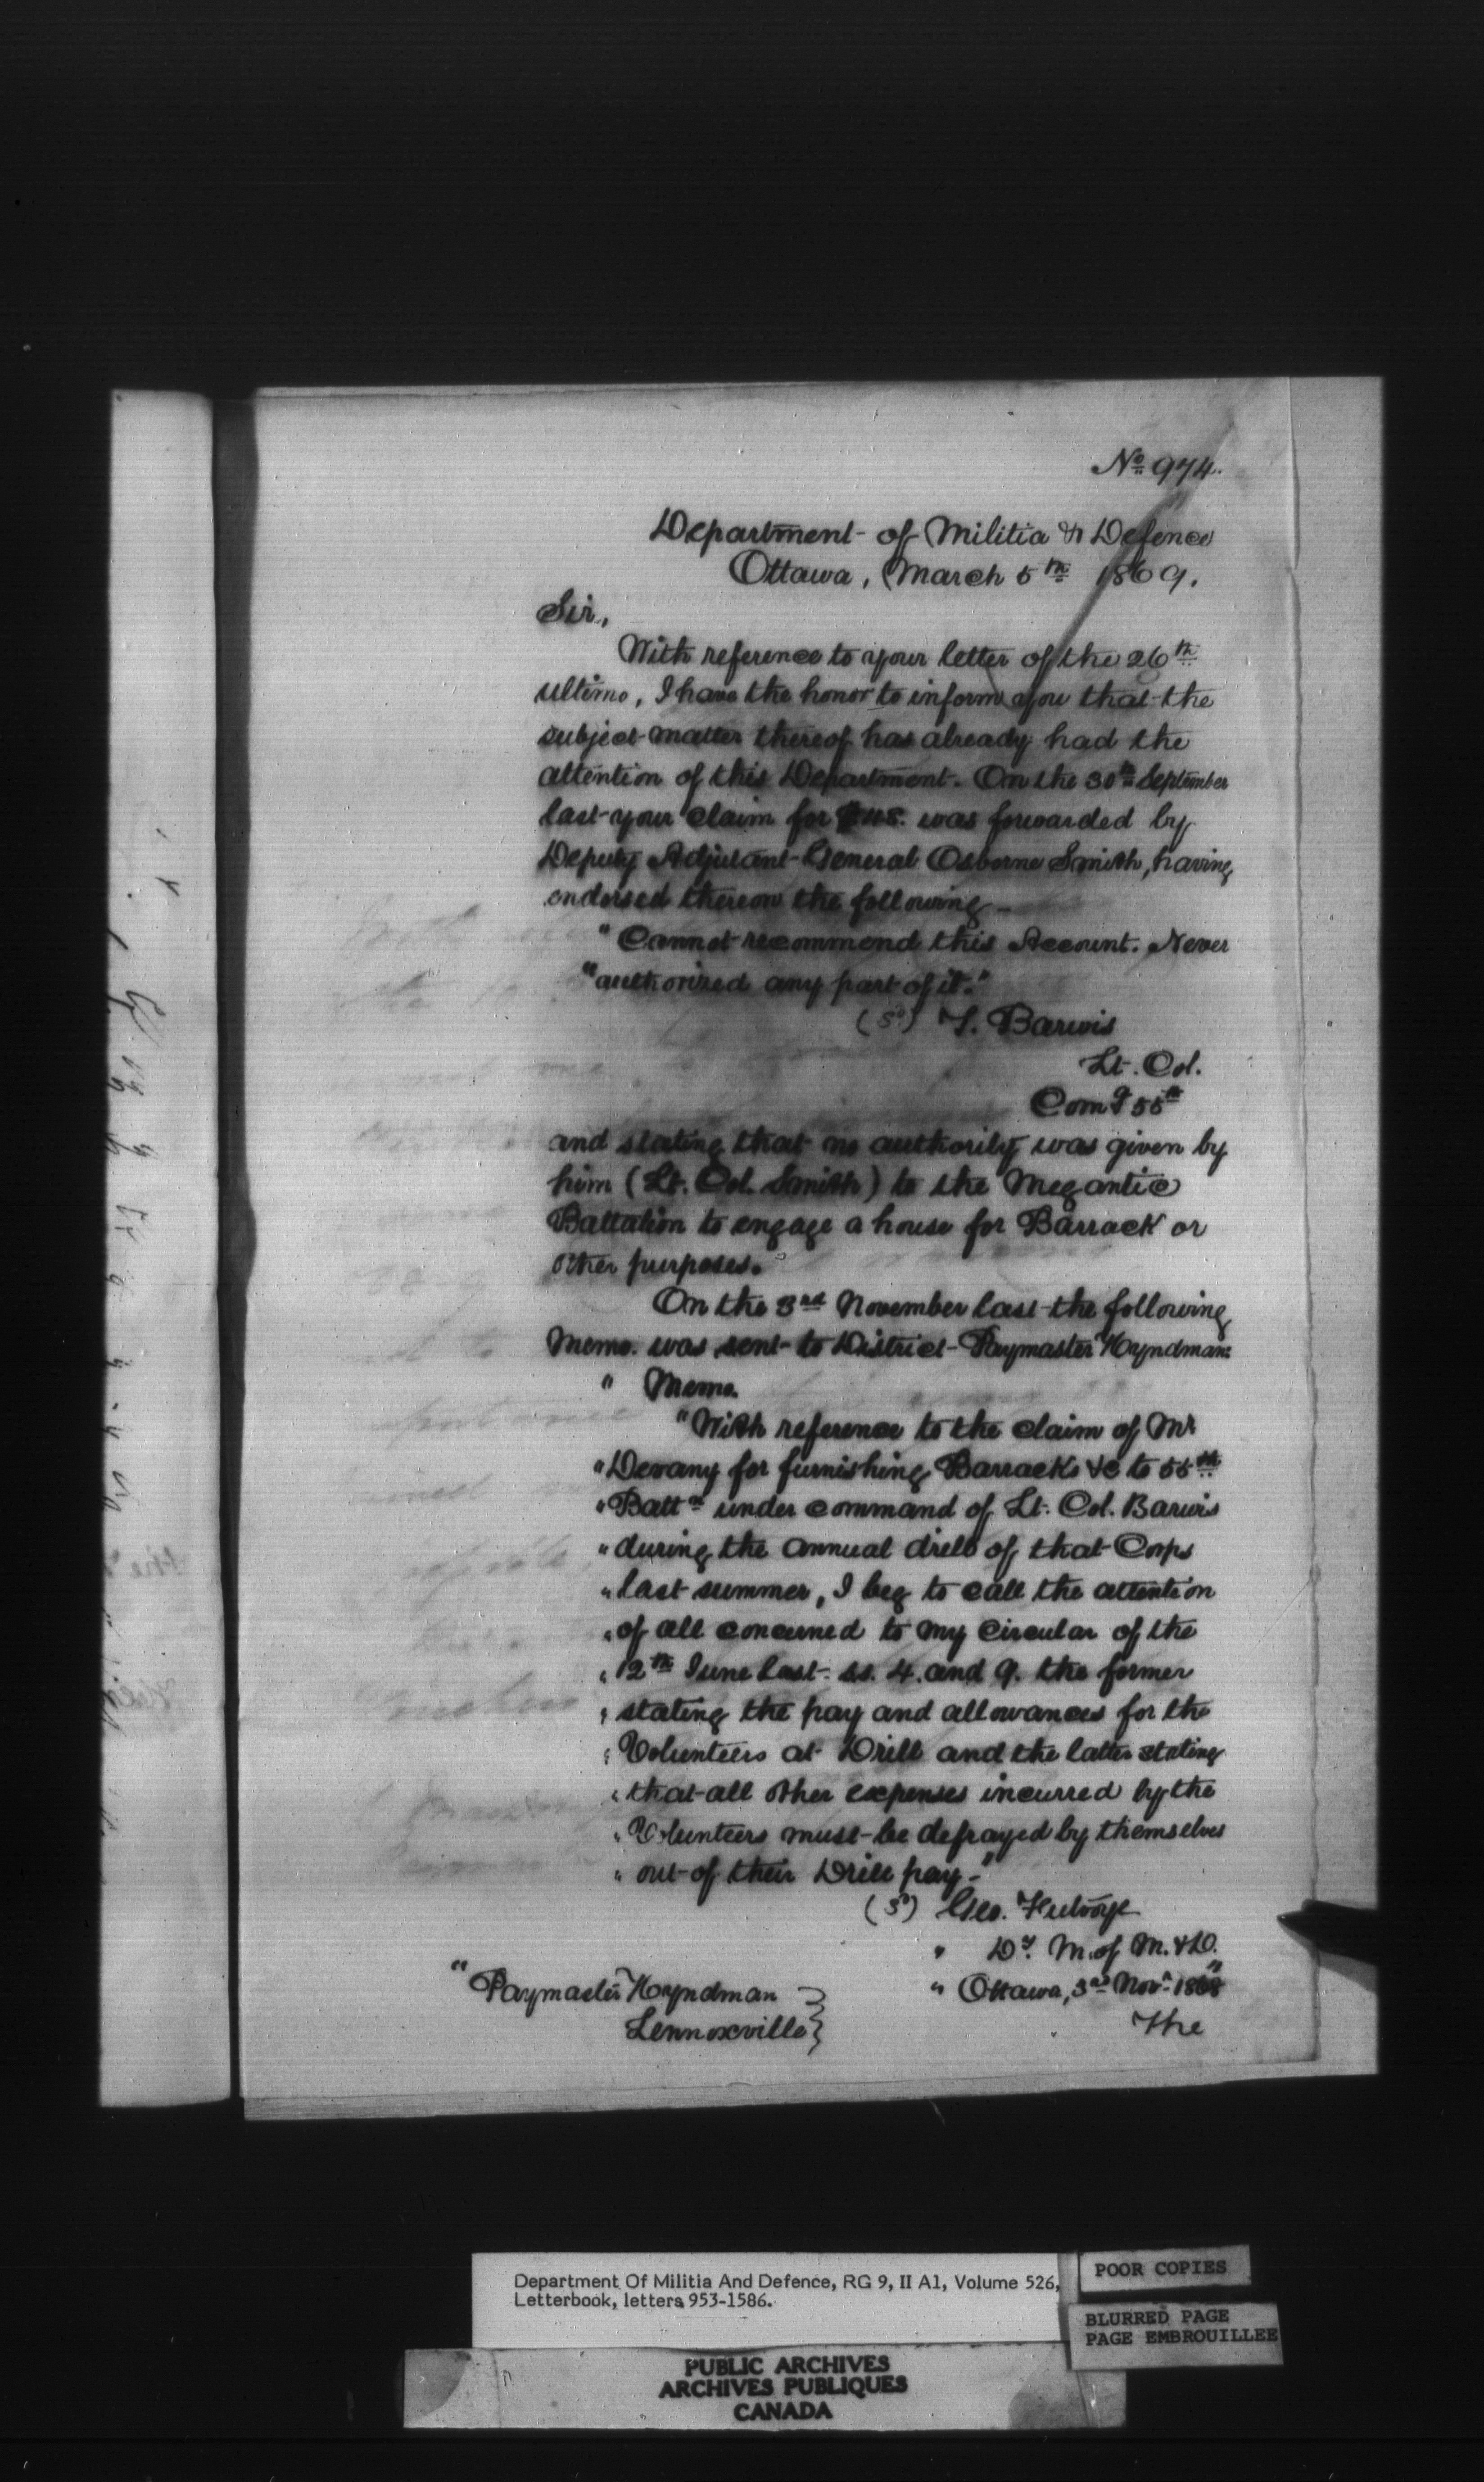 No 974.
Department of Militia & Defence
Ottawa, March 5th 1869.
Sir,
With reference to your letter of the 26th
ultimo, I have the honor to inform you that the
subject matter thereof has already had the
attention of this Department. On the 30th September
last your claim for $48. was forwarded by
Deputy Adjutant General Osborne Smith, having
endorsed thereon the following -
"Cannot recommend this Account. Never
"authorized any part of it."
(Sd) T. Barwis
Lt. Col.
Comg 55th
and stating that no authority was given by
him (Lt. Col. Smith) to the Megantic
Battalion to engage a house for Barrack or
other purposes.
On the 3rd November last the following
Memo. was sent to District Paymaster Hyndman:
" Memo.
"With reference to the claim of Mr
"Devany for furnishing Barracks &c to 55th
"Battn under command of Lt. Col. Barwis
"during the annual drill of that Corps
"last summer, I beg to call the attention
"of all concerned to my Circular of the
"12th June last. ss. 4. and 9. the former
"stating the pay and allowances for the
"Volunteers at Drill and the latter stating
"that all other expenses incurred by the
"Volunteers must be defrayed by themselves
"out of their Drill pay."
(Sd) Geo. Futvoye
" Dy. M. of M. & D.
"Paymaster Hyndman
Lennoxville
" Ottawa, 3rd Novr. 1868"
The
Department Of Militia And Defence, RG 9, II A1, Volume 526,
Letterbook, letters 953-1586.
POOR COPIES
BLURRED PAGE
PAGE EMBROUILLEE
PUBLIC ARCHIVES
ARCHIVES PUBLIQUES
CANADA